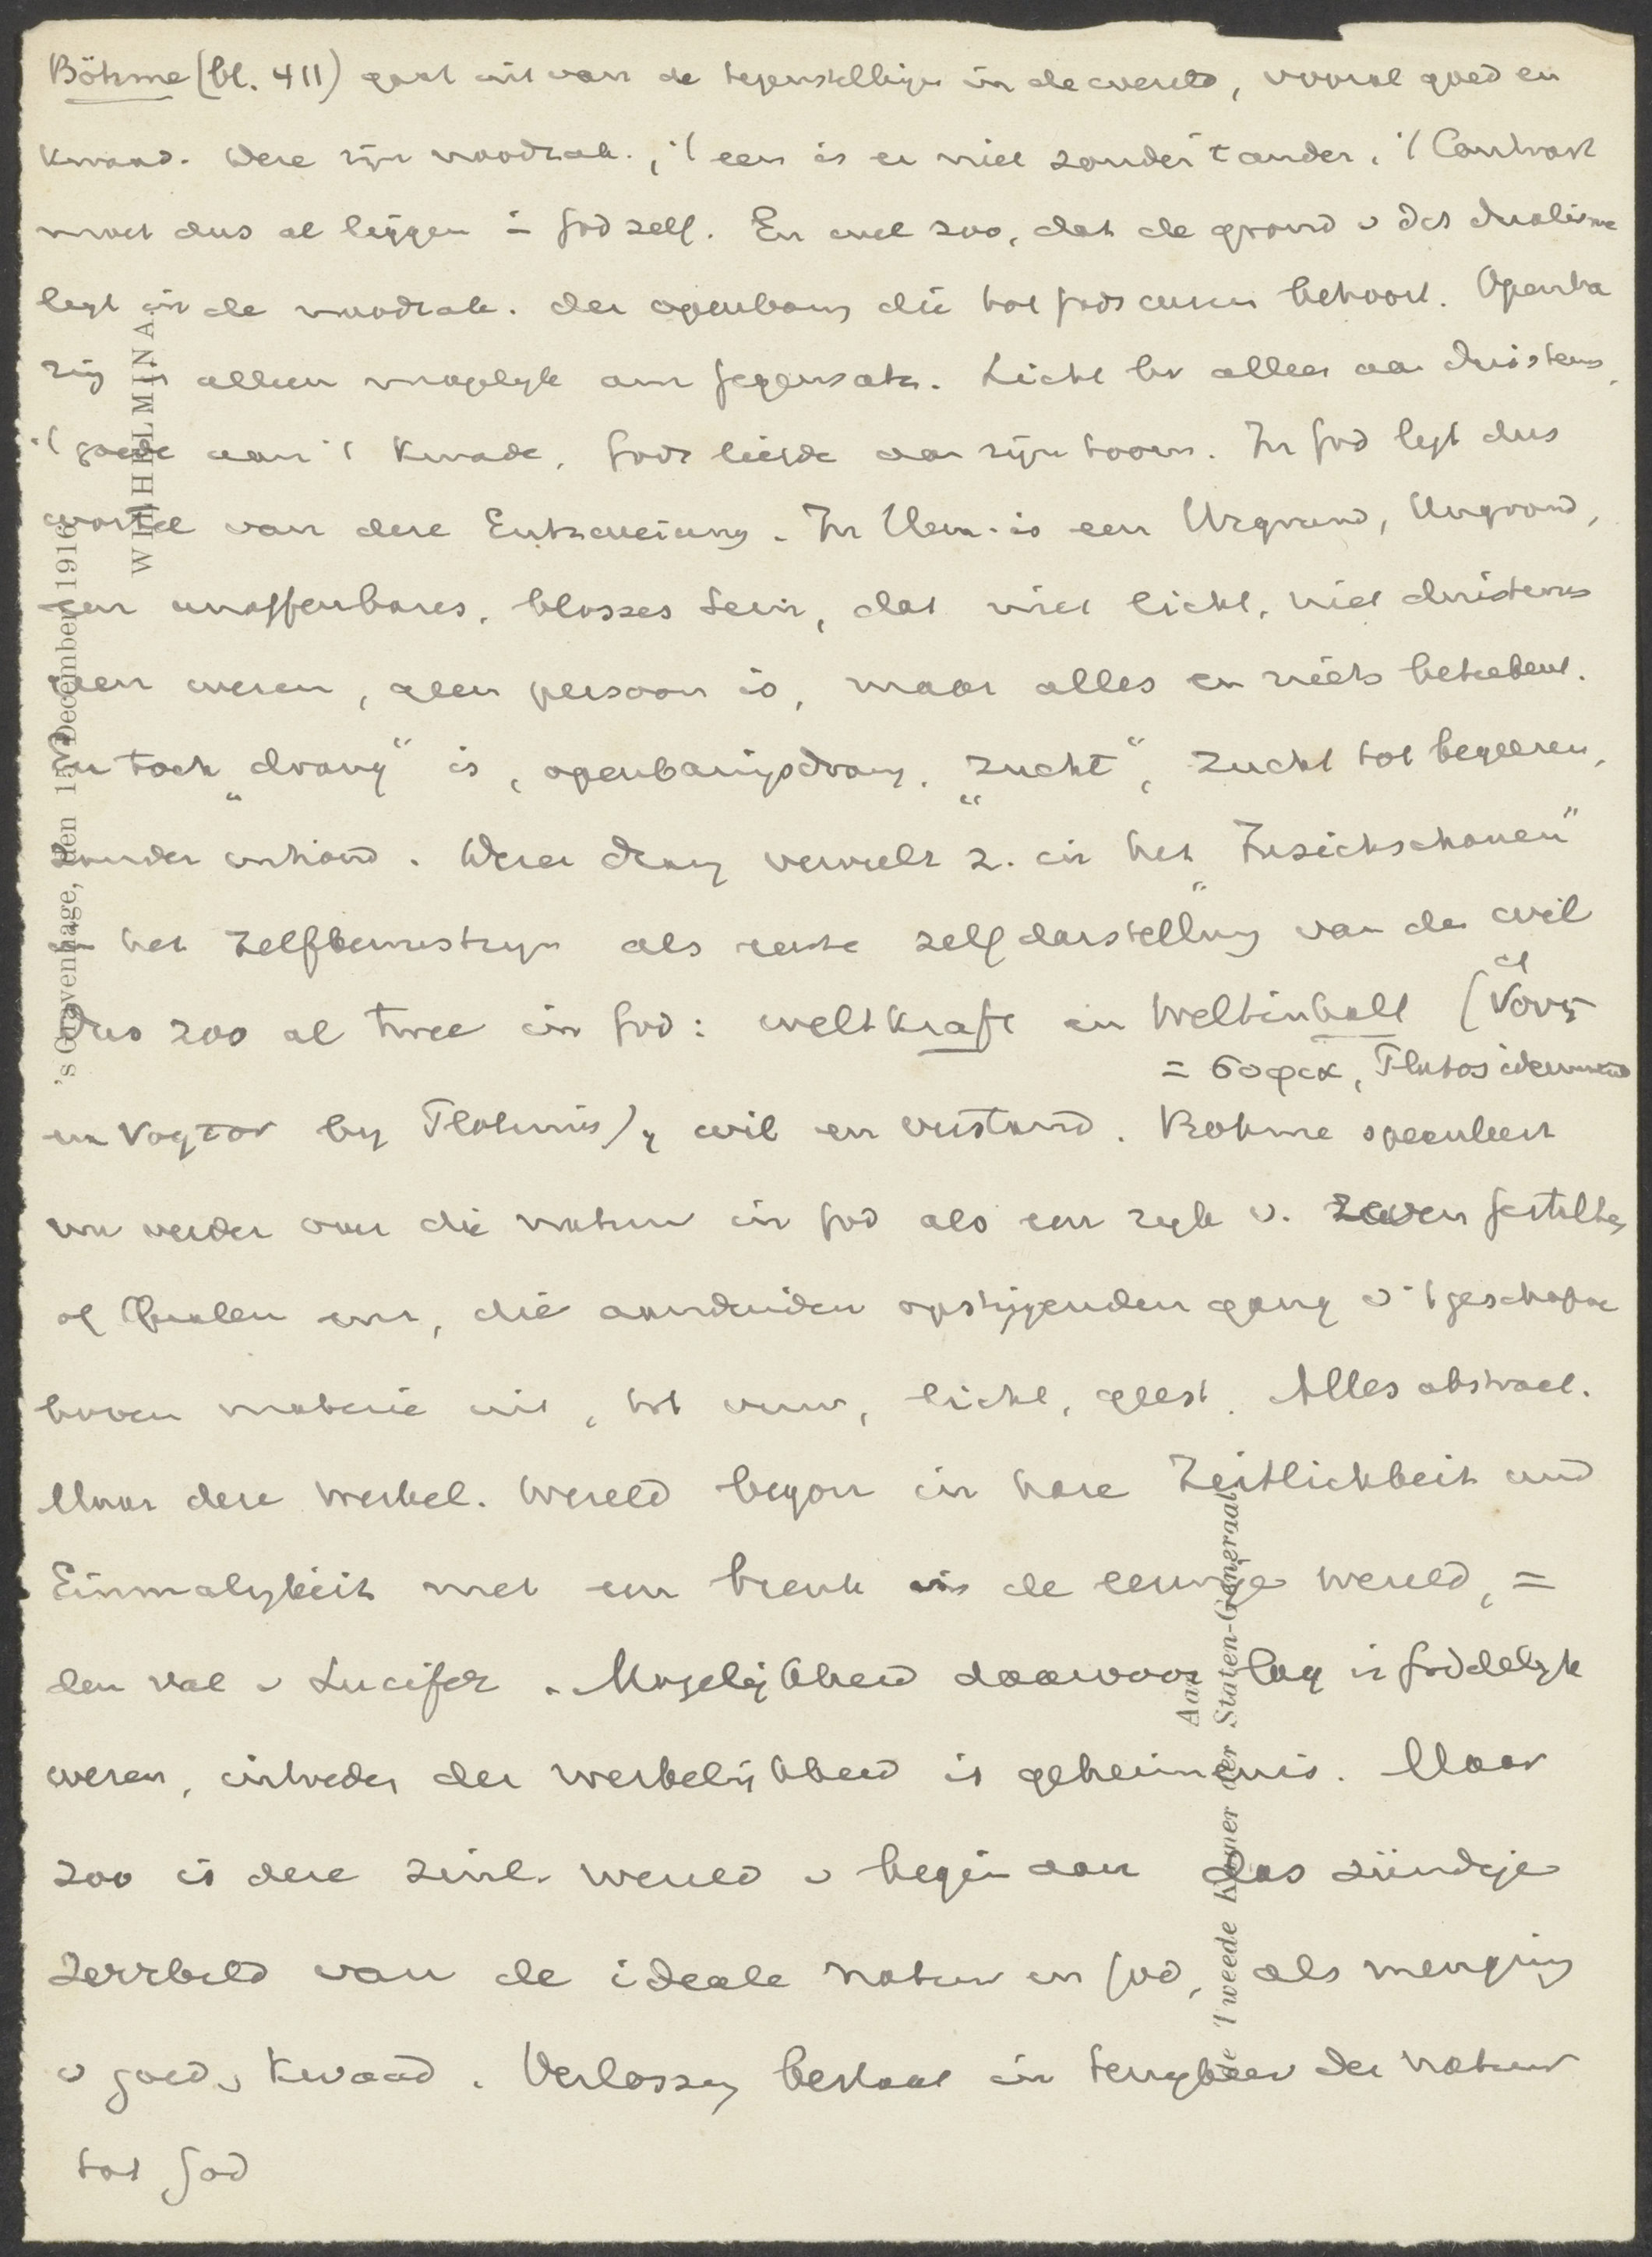 Böhme (bl. 411) gaat uit van de tegenstellingen in de wereld, vooral goed en
kwaad. Deze zijn noodzak., 't een is er niet zonder 't ander. 't Contrast
moet dus al liggen in God zelf. En wel zoo, dat de grond v dit dualisme
legt in de noodzak. der openbarg die tot Gods wezen behoort. Openba
ring is alleen mogelyk aan Gegensatz. Licht bv alleen aan duisternis,
't goede aan 't kwade, Gods liefde aan zijn toorn. In God legt dus
wortel van deze Entzweiung. In Hem is een Urgrund, Ungrund,
een unoffenbares, blosses Sein, dat niet licht, niet duisternis
geen wezen, geen persoon is, maar alles en niets beteekent.
en toch „drang" is, openbaringsdrang, „zucht", zucht tot begeeren,
zonder inhoud. Deze drang verwerkelt z. in het „Insichschauen"
in het zelfbewustzyn als eerste zelfdarstellung van den wil
Dus zoo al twee in God: weltkraft en Weltinhalt (cf νοῦς
= σοφια, Platos ideenwereld
en νοητον by Plotinus), wil en verstand. Bohme speculeert
nu verder over die natuur in God als een ryk v. zeven gestalten
of Qualen enz, die aanduiden opstijgenden gang v 't geschapene
boven materie uit, tot vuur, licht, geest. Alles abstract.
Maar deze werkel. wereld begon in hare Zeitlichkeit und
Einmalykeit met een breuk in de eeuwige wereld, =
den val v Lucifer. Mogelijkheid daarvoor lag in Goddelyk
wezen, intreden der werkelijkheid is geheimenis. Maar
zoo is deze zinl. wereld v begin aan das sündige
Zerrbild van de ideale natuur in God, als menging
v goed v kwaad. Verlossing bestaat in terugkeer der natuur
tot God
WILHELMINA.
's Gravenhage, den 15 December 1916.
Aan
de Tweede Kamer der Staten-Generaal